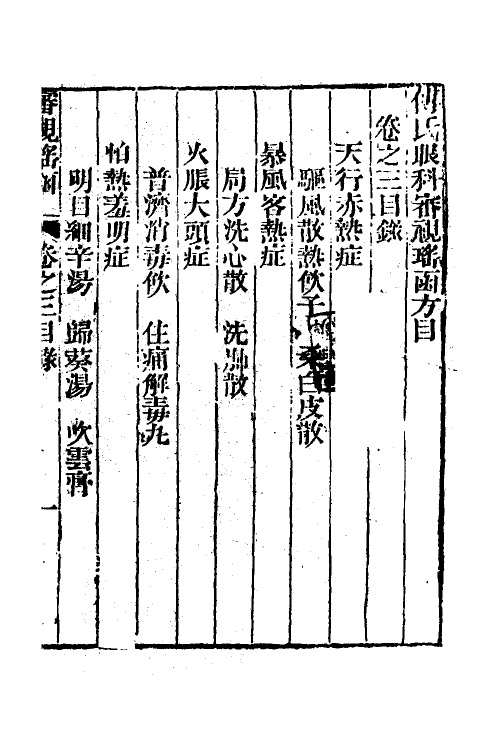 傅氏眼科審視瑤函方目
卷之三目錄
天行赤熱症
驅風散熱飲子 桑白皮散
暴風客熱症
局方洗心散 洗肺散
火脹大頭症
普濟消毒飲 住痛解毒丸
怕熱羞明症
明目細辛湯 歸葵湯 吹雲膏
審視瑤函 卷之三目錄 一